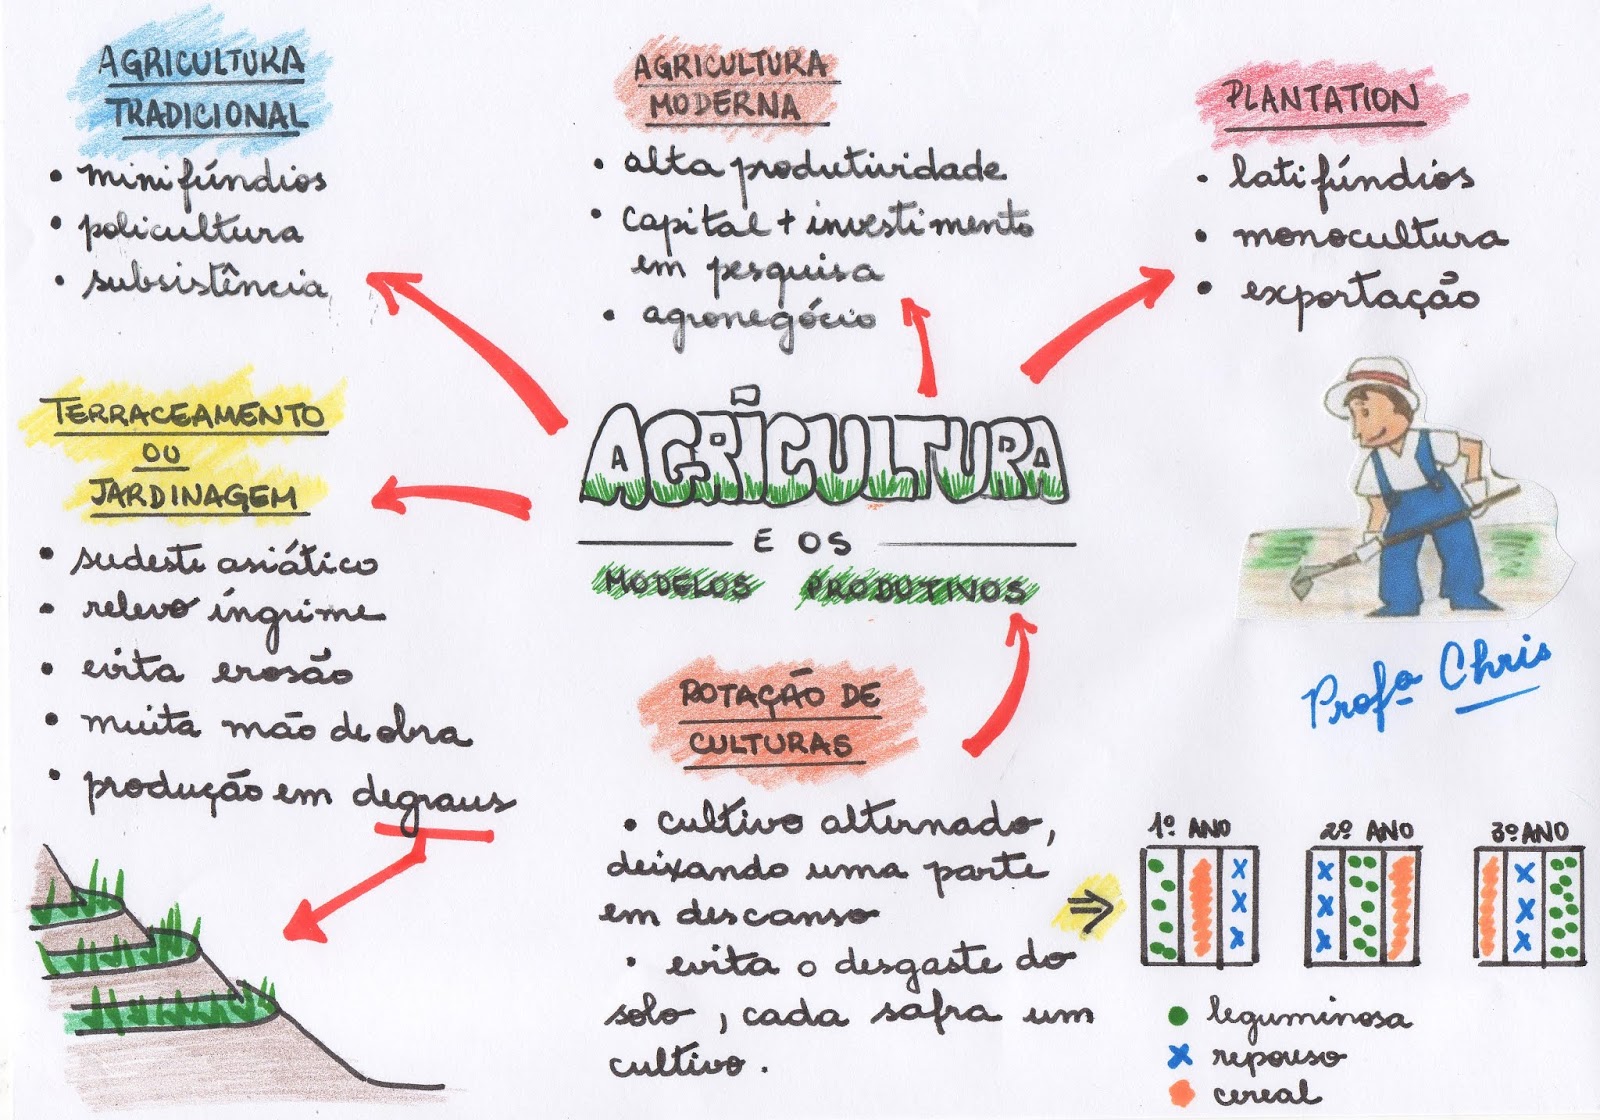 AGRICULTURA
TRADICIONAL
• minifúndios
• policultura
• subsistência
AGRICULTURA
MODERNA
• alta produtividade
• capital + investimento
em pesquisa
• agronegócio
PLANTATION
• latifúndios
• monocultura
• exportação
TERRACEAMENTO
OU
JARDINAGEM
• sudeste asiático
• relevo íngrime
• evita erosão
• muita mão de obra
• produção em degraus
AGRICULTURA
E OS
MODELOS PRODUTIVOS
Profª Chris
ROTAÇÃO DE
CULTURAS
• cultivo alternado,
deixando uma parte
em descanso
• evita o desgaste do
solo, cada safra um
cultivo.
1º ANO 2º ANO 3º ANO
leguminosa
x repouso
cereal